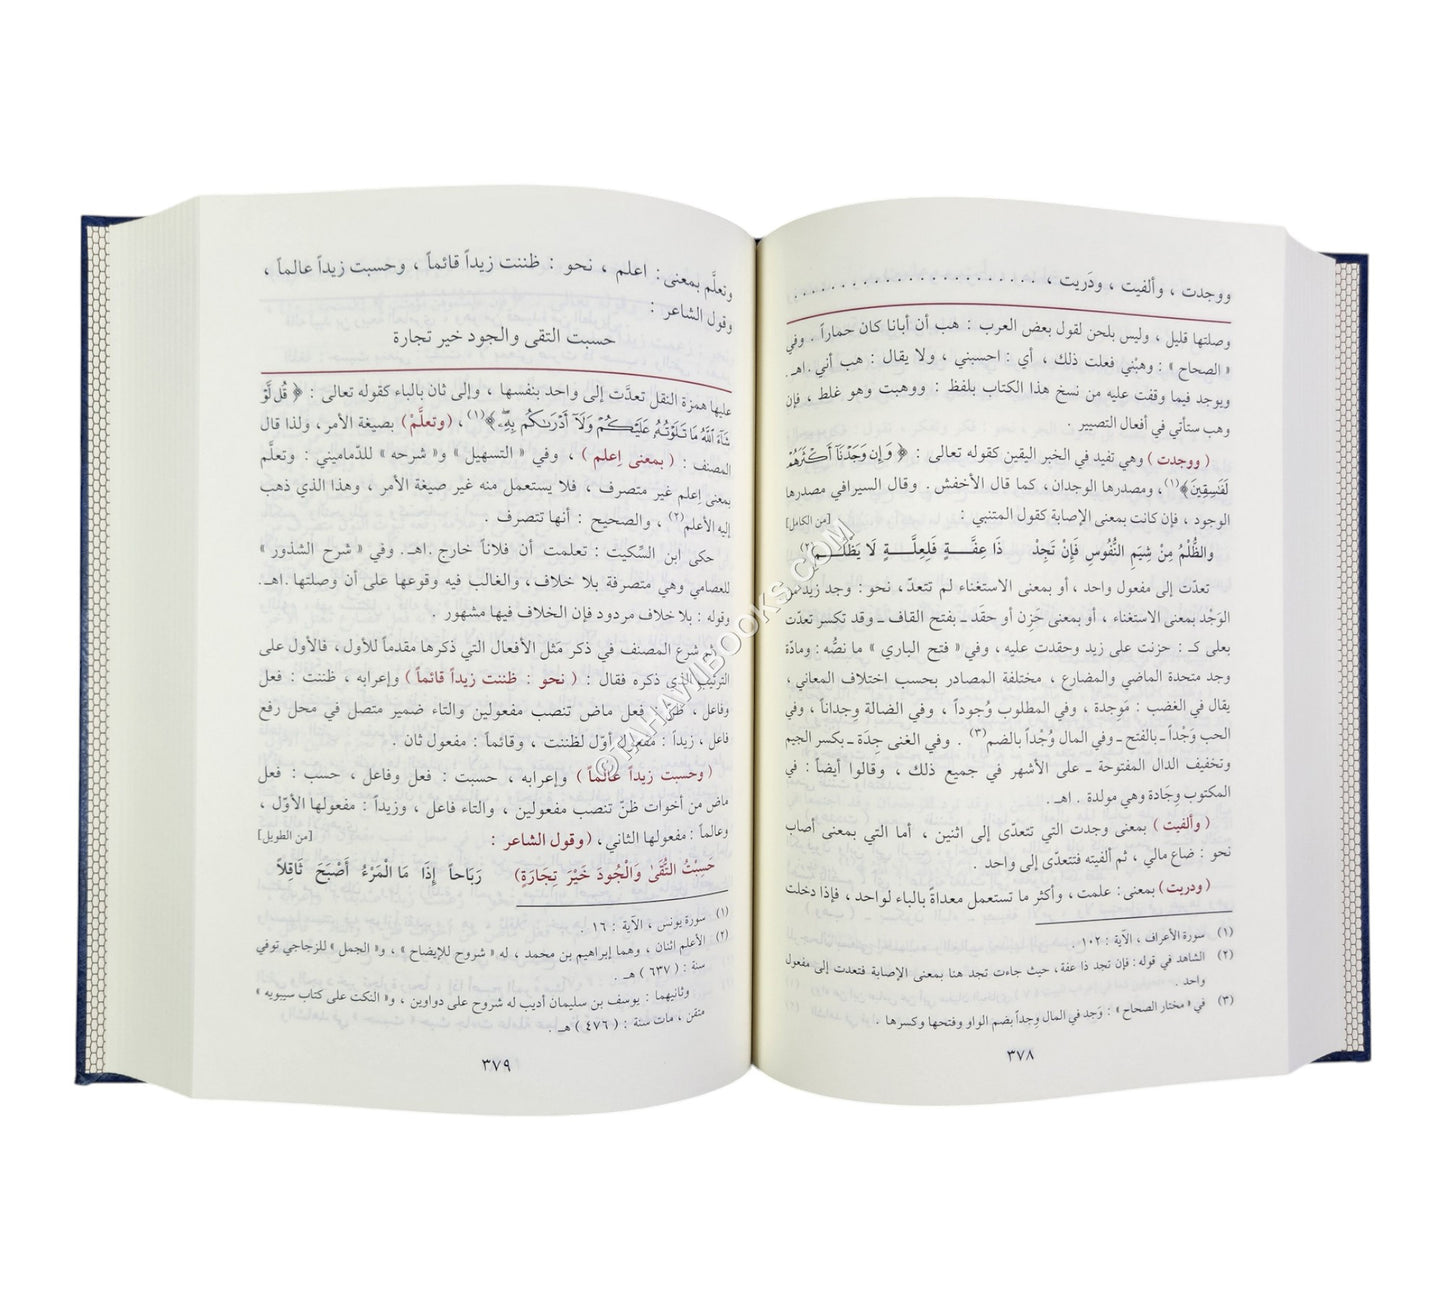 ووجدت ، وألفيت ، ودَريت ، . . . . . . . . . . . . . . . . . . . . . . . .
وصلتها قليل ، وليس بلحن لقول بعض العرب : هب أن أبانا كان حماراً . وفي
« الصحاح » : وهبْني فعلت ذلك ، أي : احسبني ، ولا يقال : هب أني .اهـ.
ويوجد فيما وقفت عليه من نسخ هذا الكتاب بلفظ : ووهبت وهو غلط ، فإن
وهب ستأتي في أفعال التصيير .
( ووجدت ) وهي تفيد في الخبر اليقين كقوله تعالى : ﴿ وَإِن وَجَدْنَآ أَكْثَرَهُمْ
لَفَٰسِقِينَ ﴾(١)، ومصدرها الوجدان، كما قال الأخفش . وقال السيرافي مصدرها
الوجود ، فإن كانت بمعنى الإصابة كقول المتنبي : [من الكامل]
والظُّلْمُ مِنْ شِيَمِ النُّفُوسِ فَإِنْ تَجِدْ ذَا عِفَّـــةٍ فَلِعِلَّـــةٍ لَا يَظْلِـــمُ(٢)
تعدّت إلى مفعول واحد ، أو بمعنى الاستغناء لم تتعدّ، نحو : وجد زيد من
الوَجْد بمعنى الاستغناء ، أو بمعنى حَزِن أو حقَد ـ بفتح القاف ـ وقد تكسر تعدّت
بعلى كـ : حزنت على زيد وحقدت عليه ، وفي « فتح الباري » ما نصُّه : ومادّة
وجد متحدة الماضي والمضارع ، مختلفة المصادر بحسب اختلاف المعاني ،
يقال في الغضب : مَوجدة ، وفي المطلوب وُجوداً ، وفي الضالة وِجداناً ، وفي
الحب وَجْداً ـ بالفتح ـ وفي المال وُجْداً بالضم(٣) . وفي الغنى جِدَة ـ بكسر الجيم
وتخفيف الدال المفتوحة ـ على الأشهر في جميع ذلك ، وقالوا أيضاً : في
المكتوب وِجَادة وهي مولدة . اهـ.
( وألفيت ) بمعنى وجدت التي تتعدّى إلى اثنين ، أما التي بمعنى أصاب
نحو : ضاع مالي ، ثم ألفيته فتتعدّى إلى واحد .
( ودريت ) بمعنى: علمت ، وأكثر ما تستعمل معداةً بالباء لواحد ، فإذا دخلت
(١) سورة الأعراف ، الآية : ١٠٢ .
(٢) الشاهد في قوله : فإن تجد ذا عفة، حيث جاءت تجد هنا بمعنى الإصابة فتعدت إلى مفعول
واحد .
(٣) في « مختار الصحاح » : وَجد في المال وجداً بضم الواو وفتحها وكسرها .
٣٧٨
وتعلَّم بمعنى : اعلم ، نحو : ظننت زيداً قائماً ، وحسبت زيداً عالماً ،
وقول الشاعر :
حسبت التقى والجود خير تجارة
عليها همزة النقل تعدَّت إلى واحد بنفسها ، وإلى ثان بالباء كقوله تعالى : ﴿ قُل لَّوْ
شَآءَ ٱللَّهُ مَا تَلَوْتُهُۥ عَلَيْكُمْ وَلَآ أَدْرَىٰكُم بِهِۦ ﴾(١)، ( وتعلَّمْ ) بصيغة الأمر، ولذا قال
المصنف : ( بمعنى اِعلم ) ، وفي « التسهيل » و« شرحه » للدّماميني : وتعلَّم
بمعنى اِعلم غير متصرف ، فلا يستعمل منه غير صيغة الأمر ، وهذا الذي ذهب
إليه الأعلم(٢) ، والصحيح : أنها تتصرف .
حكى ابن السِّكيت : تعلمت أن فلاناً خارج .اهـ. وفي « شرح الشذور »
للعصامي وهي متصرفة بلا خلاف، والغالب فيه وقوعها على أن وصلتها .اهـ.
وقوله : بلا خلاف مردود فإن الخلاف فيها مشهور .
ثم شرع المصنف في ذكر مَثل الأفعال التي ذكرها مقدماً للأول، فالأول على
الترتيب الذي ذكره فقال : ( نحو : ظننت زيداً قائماً ) وإعرابه ، ظننت : فعل
وفاعل ، ظن : فعل ماض تنصب مفعولين والتاء ضمير متصل في محل رفع
فاعل ، زيداً : مفعول أوّل لظننت ، وقائماً : مفعول ثان .
( وحسبت زيداً عالماً ) وإعرابه ، حسبت : فعل وفاعل ، حسب : فعل
ماض من أخوات ظنّ تنصب مفعولين ، والتاء فاعل ، وزيداً : مفعولها الأوّل ،
وعالماً : مفعولها الثاني، ( وقول الشاعر : [من الطويل]
حَسِبْتُ التُّقَىٰ وَالْجُودَ خَيْرَ تِجَارَةٍ) رَبَاحاً إِذَا مَا الْمَرْءُ أَصْبَحَ ثَاقِلاً
(١) سورة يونس ، الآية : ١٦ .
(٢) الأعلم اثنان ، وهما إبراهيم بن محمد ، له « شروح للإيضاح » ، و« الجمل » للزجاجي توفي
سنة : ( ٦٣٧ ) هـ .
وثانيهما : يوسف بن سليمان أديب له شروح على دواوين ، و« النكت على كتاب سيبويه »
متقن ، مات سنة : ( ٤٧٦ ) هـ .
٣٧٩
©TAHAWIBOOKS.COM